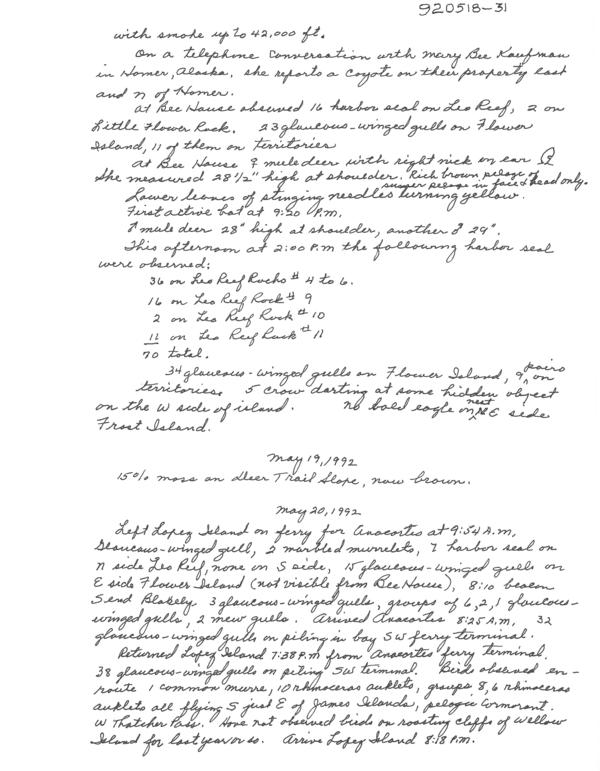 920518-31
with smoke up to 42,000 ft.
On a telephone conversation with Mary Bee Kaufman
in Homer, Alaska, she reports a coyote on their property east
and N of Homer.
At Bee House observed 16 harbor seal on Leo Reef, 2 on
Little Flower Rock. 23 glaucous-winged gulls on Flower
Island, 11 of them on territories
At Bee House ♀ mule deer with right nick on ear
She measured 28 1/2" high at shoulder. Rich brown pelage of
summer pelage in face & head only.
Lower leaves of stinging needles turning yellow.
First active bat at 9:20 P.M.
♂ mule deer 28" high at shoulder, another ♂ 29".
This afternoon at 2:00 P.M the following harbor seal
were observed:
36 on Leo Reef Rocks # 4 to 6.
16 on Leo Reef Rock # 9
2 on Leo Reef Rock # 10
11 on Leo Reef Rock # 11
70 total.
34 glaucous-winged gulls on Flower Island, 9 pairs on
territories. 5 crow darting at some hidden object
on the W side of island. No bald eagle on nest NE side
Frost Island.
May 19, 1992
15% moss on Deer Trail Slope, now brown.
May 20, 1992
Left Lopez Island on ferry for Anacortes at 9:54 A.M.
Glaucous-winged gull, 2 marbled murrelets, 7 harbor seal on
N side Leo Reef, none on S side, 15 glaucous-winged gulls on
E side Flower Island (not visible from Bee House), 8:10 beacon
S end Blakely 3 glaucous-winged gulls, groups of 6, 2, 1 glaucous-
winged gulls, 2 mew gulls. Arrived Anacortes 8:25 A.M, 32
glaucous-winged gulls on piling in bay SW ferry terminal.
Returned Lopez Island 7:38 P.M from Anacortes ferry terminal.
38 glaucous-winged gulls on piling SW terminal. Birds observed en-
route 1 common murre, 10 rhinoceros auklets, groups 8, 6 rhinoceros
auklets all flying S just E of James Islands, pelagic cormorant.
W Thatcher Pass. Have not observed birds on roosting cliffs of Willow
Island for last year or so. Arrive Lopez Island 8:18 P.M.